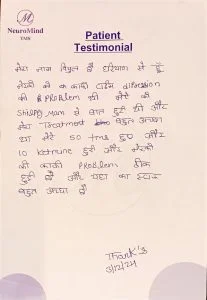 NeuroMind
TMS
Patient
Testimonial
मेरा नाम विपुल है हरियाणा से हूँ
मेरेको को काफी टाईम depression
की problem थी मेरे को
mam से बात हुई थी और
मेरा Treatment बहुत अच्छा
था मेरे 50 tms हुए और
10 ketmine हुई और मेरेको
को काफी problem ठीक
हुई है और यहा का स्टाफ
बहुत अच्छा है
Thank's
3/12/24